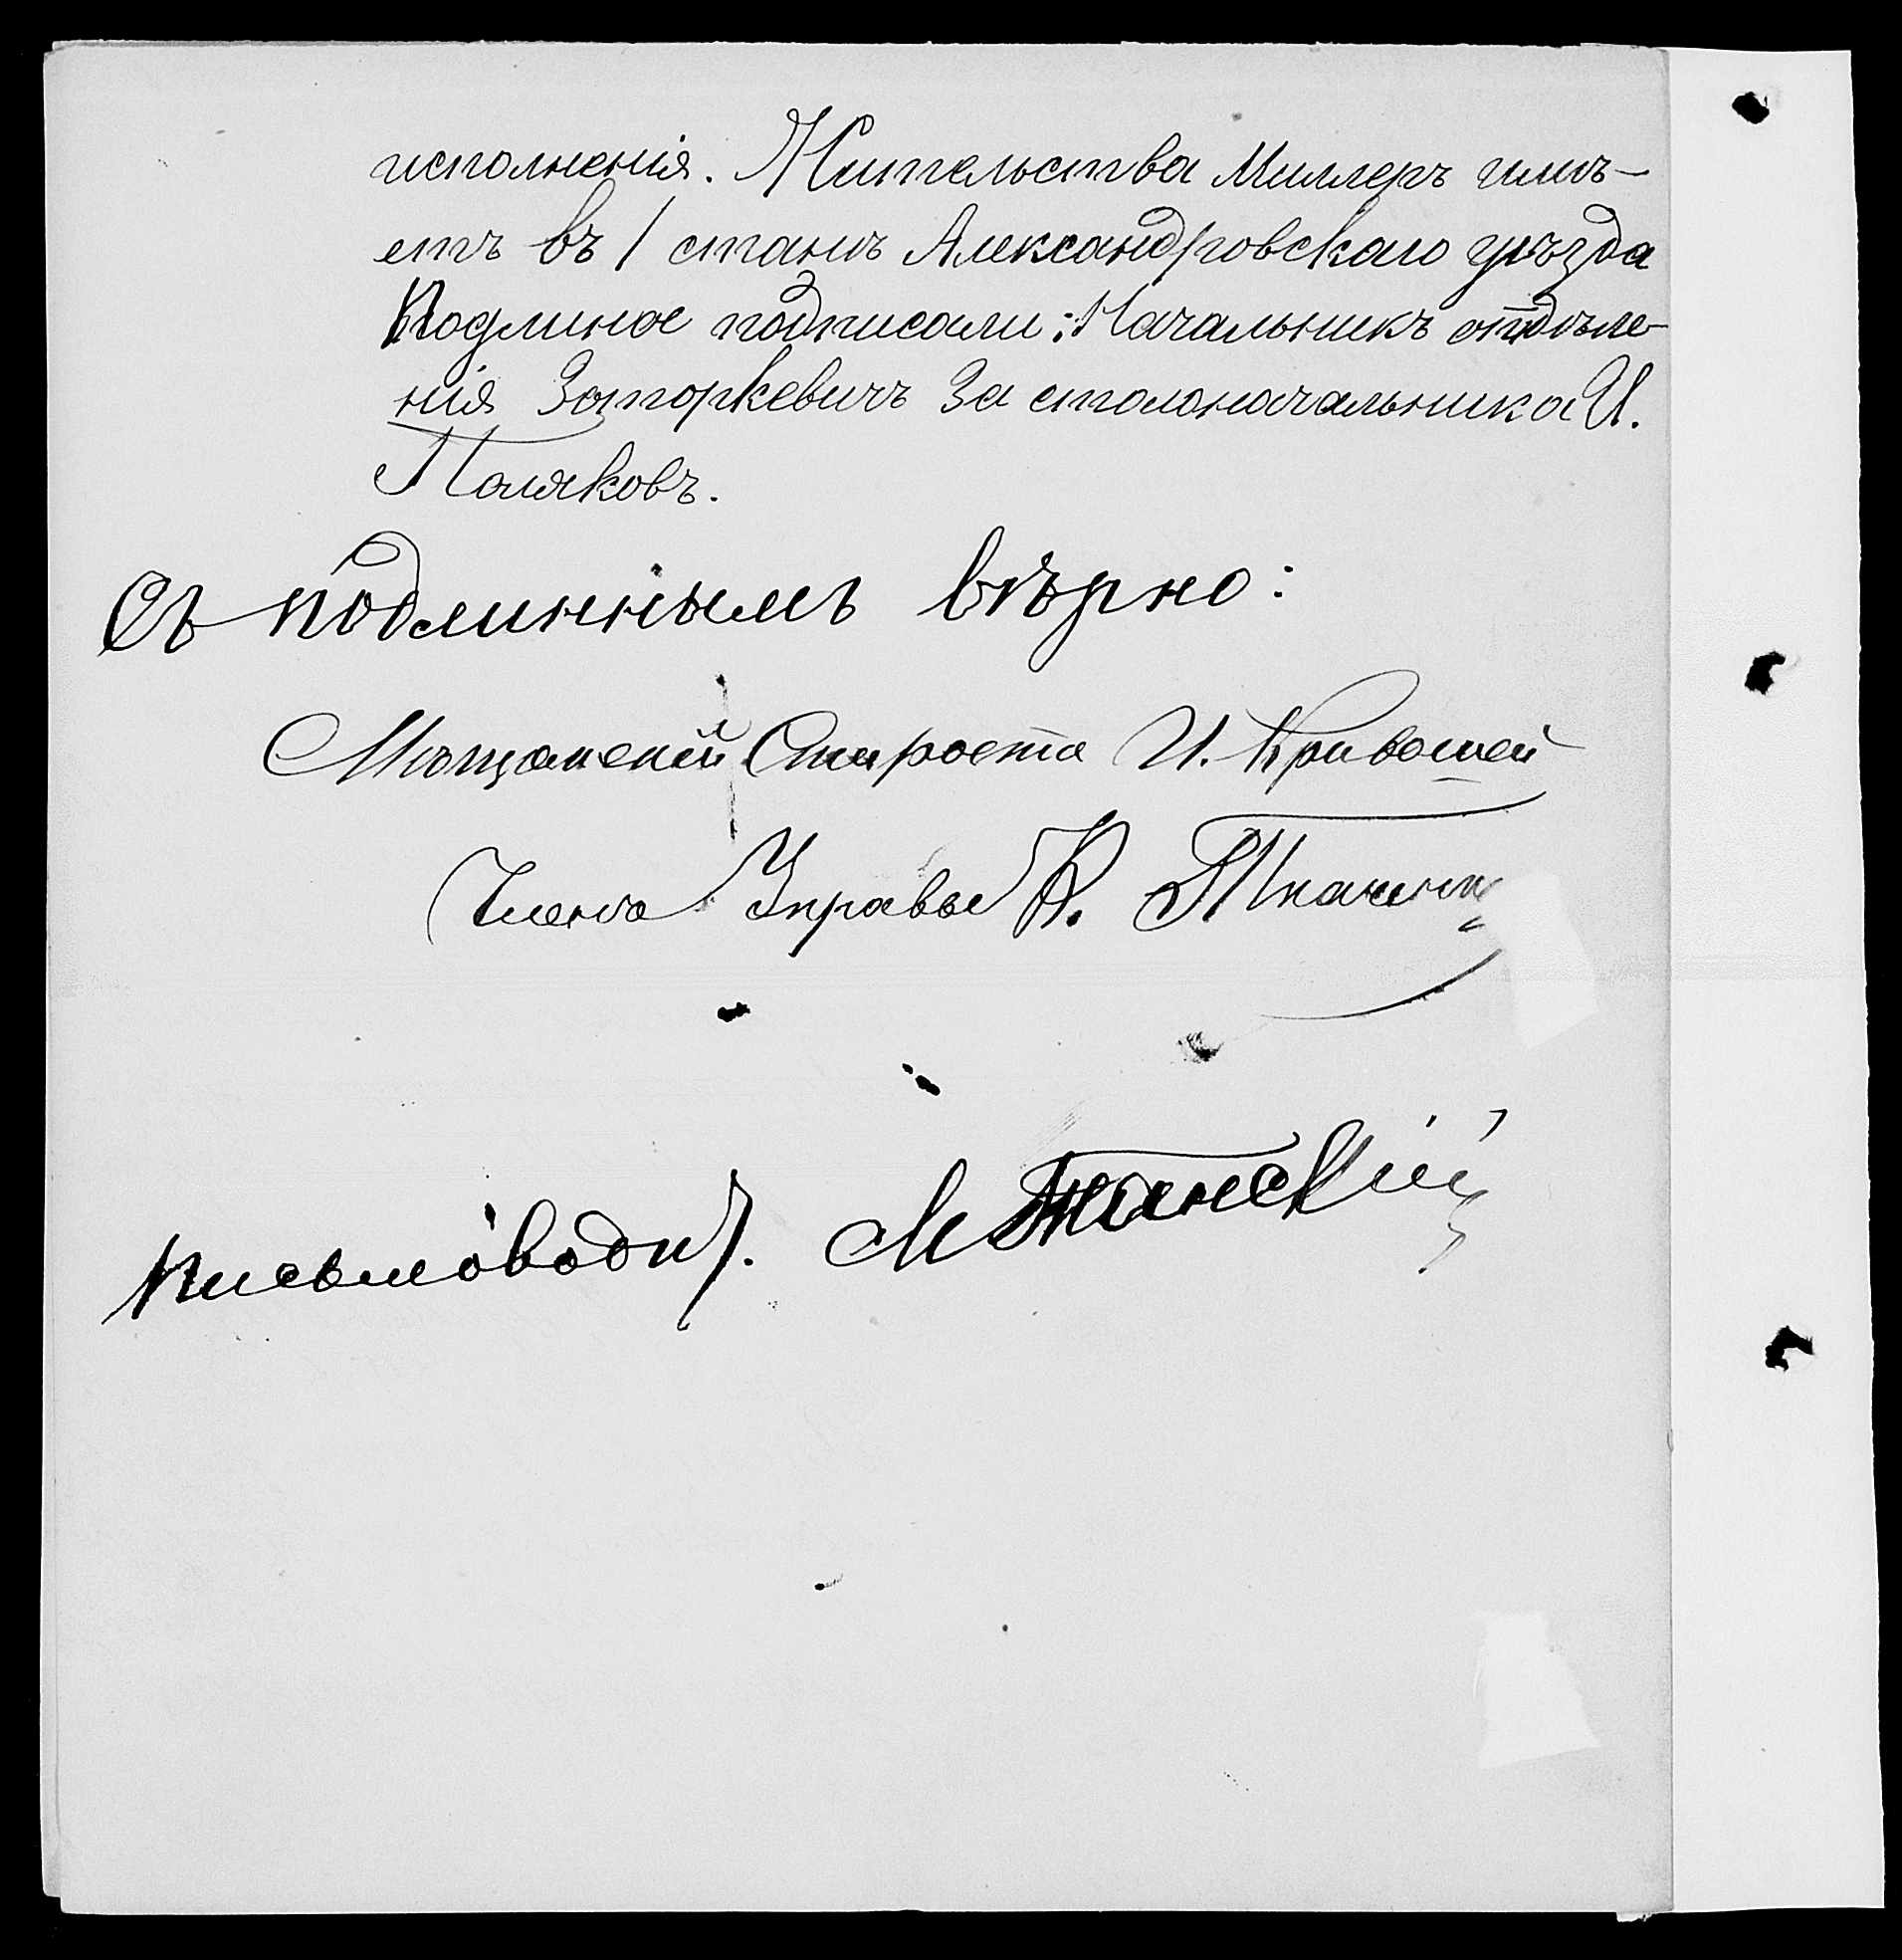 исполненія. Жительства Миллеръ имѣ-
етъ въ 1 станѣ Александровскаго уѣзда
Подлиное подписали: Начальникъ отдѣле-
нія Запоркевичъ За столоначальника И.
Поляковъ.
Съ подлиннымъ вѣрно:
Мѣщанскій Староста И. Кривошей
Члена Управы К.
Письмоводит. М